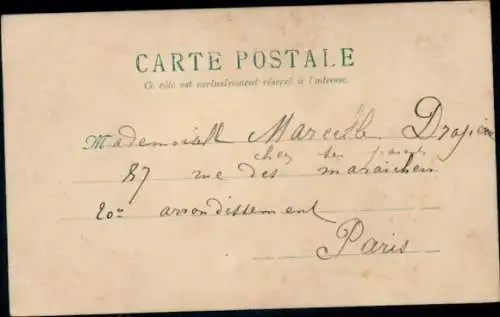 CARTE POSTALE
Ce côté est exclusivement réservé à l'adresse.
Mademoiselle Marcelle
chez ses parents
87 rue des maraichers
20me arrondissement
Paris